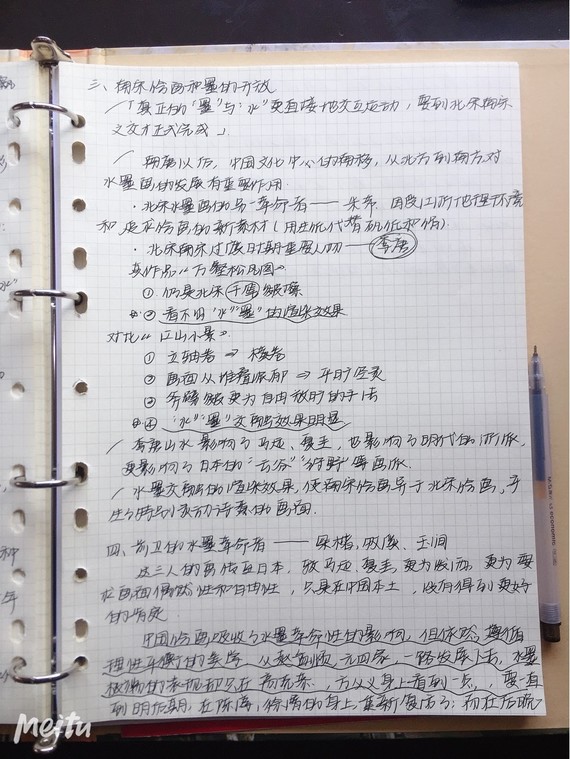 三、南宋绘画和墨的开放
「真正的“墨”与“水”更直接地交互运动，要到北宋南宋
之交才正式完成」
南唐以后，中国文化中心的南移，从北方到南方对
水墨画的发展有重要作用.
· 北宋水墨画的另一革命者——米芾，因及江南地理环境
和 是在绘画的新素材(用生纸代替矾纸和绢).
· 北宋南宋过渡时期重要人物——李唐
其作品“万壑松风图”
① 仍具北宋 千岩 皴擦
② 看不出“水”“墨”的渲染效果
对比“江山小景”
① 立轴卷 ⇒ 横卷
② 画面从堆叠浓郁 ⇒ 开旷空灵
③ 斧劈皴更为自由放旷的手法
④ “水”“墨”交融效果明显
李唐山水影响了马远、夏圭，也影响了明代的浙派，
更影响了日本的“云谷”“狩野”等画派.
水墨交融的渲染效果，使南宋绘画异于北宋绘画，产
生了诗意的画面.
四、前卫的水墨革命者——梁楷，牧溪，玉涧
这三人的画传至日本，较马远、夏圭，更为泼洒，更为要
在画面偶然性和自由性，只是在中国本土，没有得到更好
的响应
中国绘画吸收了水墨革命性的影响，但依路，遵循
理性平衡的美学，从赵孟頫、元四家，一路发展下去，水墨
极端的表现却只在高克恭、方从义身上看到一点，要一直
到明后期，在陈淳，徐渭的身上重新复活了；而在石
Meitu